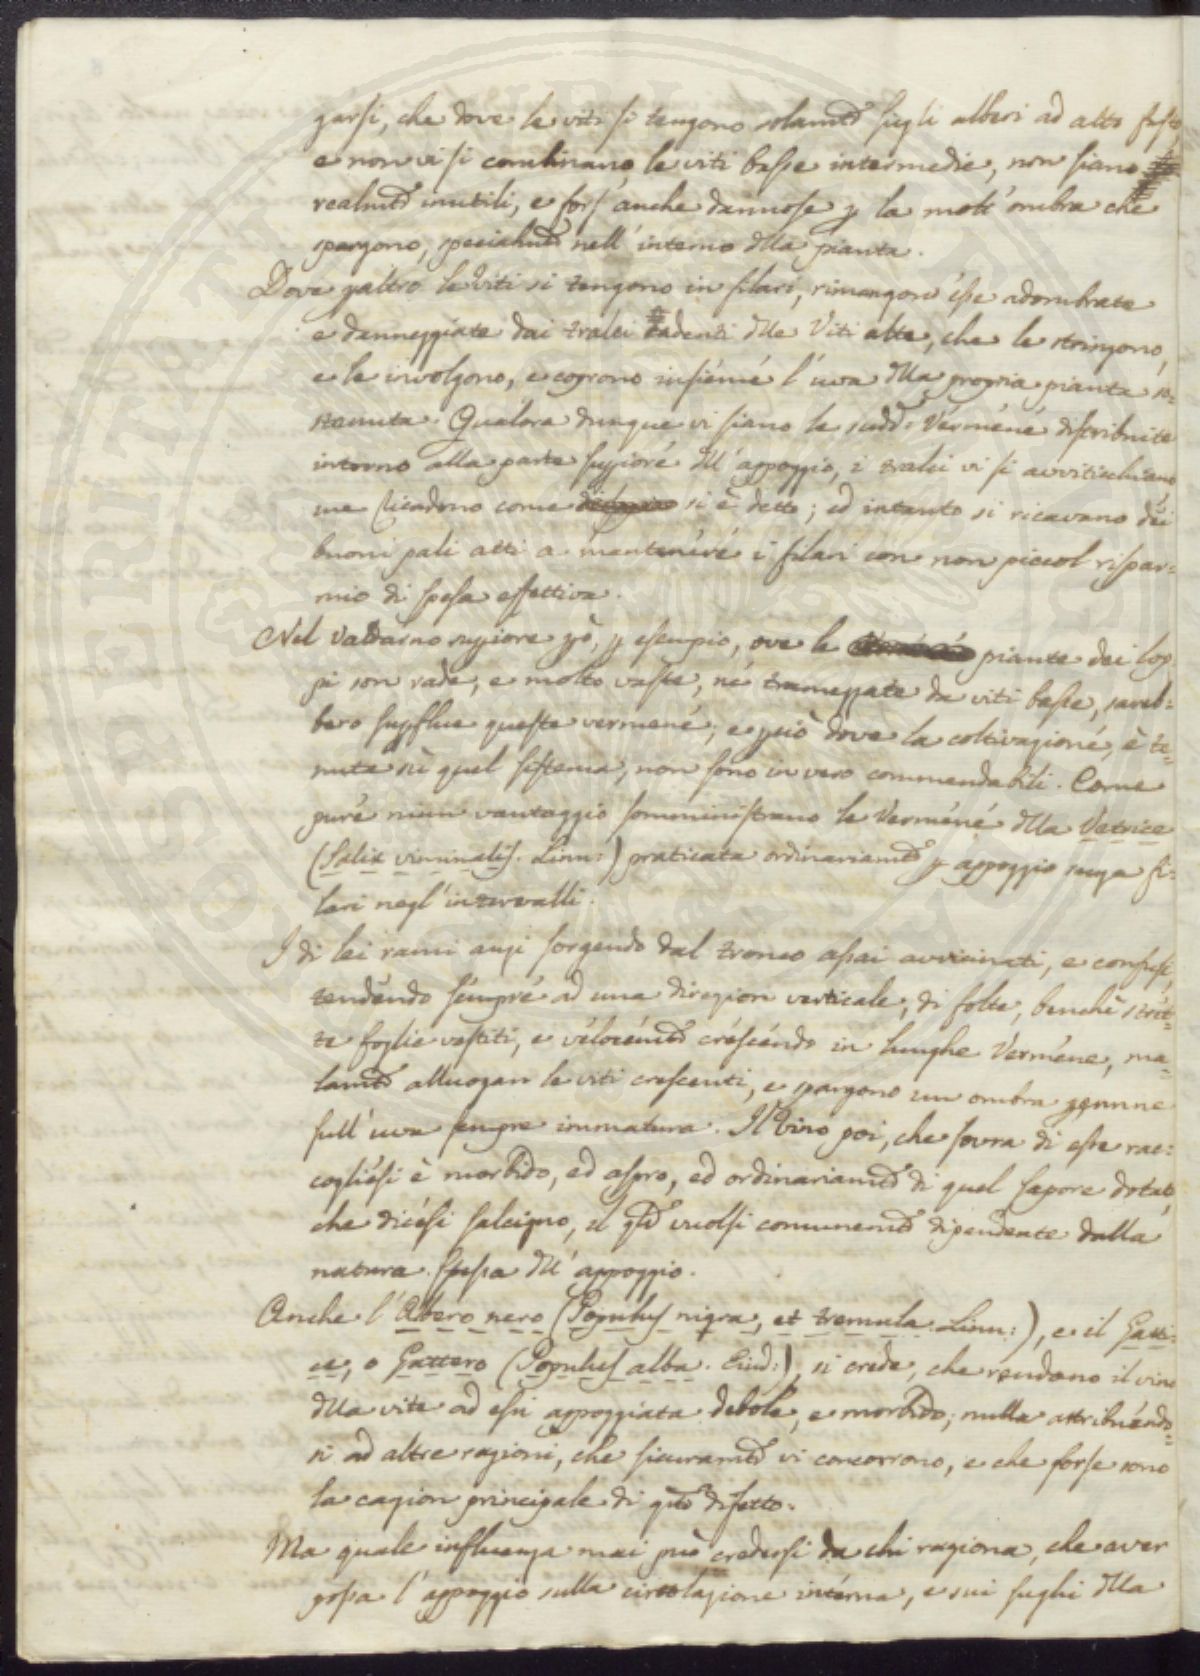 garsi, che dove le viti si tengono solamte sugli alberi ad alto fusto
e non vi si combinano le viti basse intermedie, non siano
realmte inutili, e fors' anche dannose p la molt' ombra che
spargono, specialmte nell' interno dlla pianta.
Dove paltro le Viti si tengono in filari, rimangon' esse adombrate
e danneggiate dai tralci cadenti dlle Viti alte, che le stringono,
e le involgono, e coprono insiémé l' uva dlla propria pianta so=
stenuta. Qualora dunque vi siano le sudd.e Verméné distribuite
intorno alla parte suppioré dll' appoggio, i tralci vi si avvitischiano
ne ricadono come si è detto; ed intanto si ricavano dei
buoni pali atti a manténéré i filari con non piccol rispar=
mio di spesa effettiva.
Nel Valdarno suppiore pò, p esempio, ove le piante dei lop
pi son rade, e molto vaste, né tramezzate da viti basse, sareb=
bero supflue queste vermené, e pciò dove la coltivazioné, è te=
nuta sù quel sistema, non sono in vero commendabili. Come
puré niun vantaggio somministrano le Verméné dlla Vetrice
(Salix viminalis. Linn:) praticata ordinariamte p appoggio senza fi=
lari negl' intervalli.
I di lei rami anzi sorgendo dal tronco assai avvicinati, e confusi,
tendéndo sémpré ad una direzion verticale, di folte, benchè strét=
te foglie vestiti, e vélocémte créscéndo in lunghe Verméne, ma=
lamte alluogan le viti crescenti, e spargono un ombra penne
sull' uva sempre immatura. Il Vino poi, che sovra di esse rac=
cogliési è morbido, ed aspro, ed ordinariamte di quel sapore dotato,
che dicési salcigno, il qle vuolsi comunemte dipendente dalla
natura stessa dll' appoggio.
Anche l' Albero nero (Populus nigra, et tremula. Linn:), e il Gatti=
ce, o Gattero (Populus alba. Eiusd:), si crede, che rendano il vino
dlla vite ad essi appoggiata debole, e morbido; nulla attribuéndo=
si ad altre ragioni, che sicuramte vi concorrono, e che forse sono
la cagion principale di qto difetto.
Ma quale influenza mai può credersi da chi ragiona, che aver
possa l' appoggio sulla circolazione intérna, e sui sughi dlla